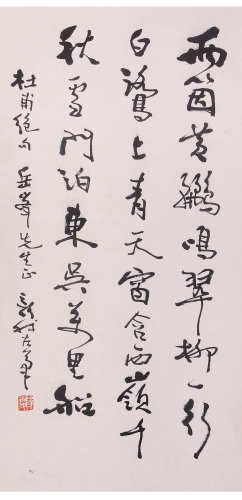 兩箇黃鸝鳴翠柳一行
白鷺上青天窗含西嶺千
秋雪門泊東吳萬里船
杜甫絕句 岳峯先生正